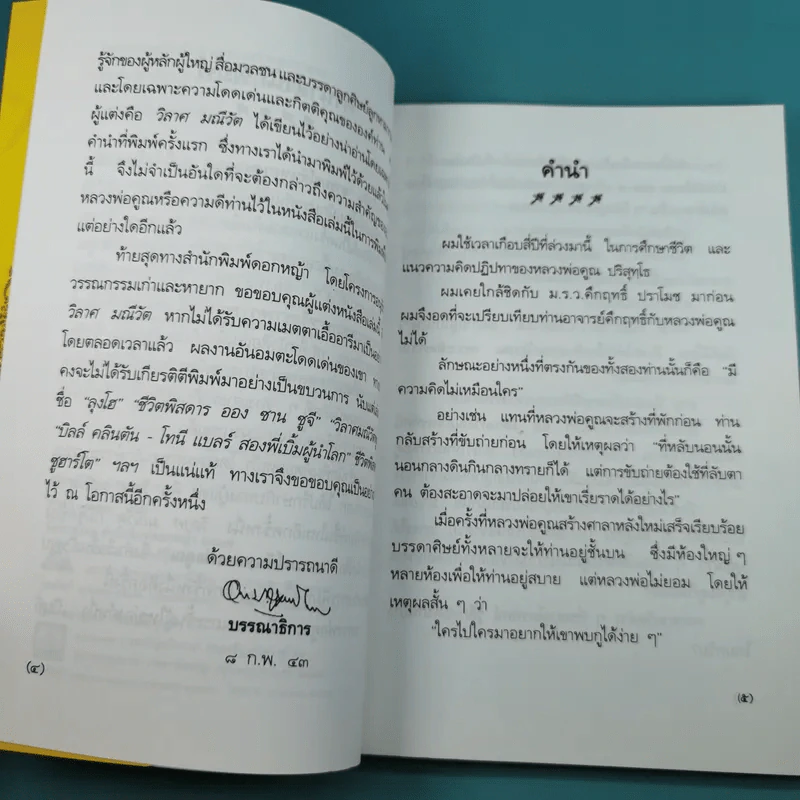 รู้จักของผู้หลักผู้ใหญ่ สื่อมวลชน และบรรดาลูกศิษย์ลูกหา
และโดยเฉพาะความโดดเด่นและกิตติคุณขององค์ท่าน
ผู้แต่งคือ วิลาศ มณีวัต ได้เขียนไว้อย่างน่าอ่านโดย
คำนำที่พิมพ์ครั้งแรก ซึ่งทางเราได้นำมาพิมพ์ไว้ด้วยแล้ว
นี้ จึงไม่จำเป็นอันใดที่จะต้องกล่าวถึงความสำคัญของ
หลวงพ่อคูณหรือความดีท่านไว้ในหนังสือเล่มนี้ในการพิมพ์
แต่อย่างใดอีกแล้ว
ท้ายสุดทางสำนักพิมพ์ดอกหญ้า โดยโครงการ
วรรณกรรมเก่าและหายาก ขอขอบคุณผู้แต่งหนังสือเล่มนี้
วิลาศ มณีวัต หากไม่ได้รับความเมตตาเอื้ออารีมาเป็นอย่าง
โดยตลอดเวลาแล้ว ผลงานอันอมตะโดดเด่นของเขา ทาง
คงจะไม่ได้รับเกียรติตีพิมพ์มาอย่างเป็นขบวนการ นับแต่
ชื่อ "ลุงโฮ" "ชีวิตพิสดาร ออง ซาน ซูจี" "วิลาศมณีวัต
"บิลล์ คลินตัน - โทนี แบลร์ สองพี่เบิ้มผู้นำโลก" ชีวิต
ซูฮาร์โต" ฯลฯ เป็นแน่แท้ ทางเราจึงขอขอบคุณเป็นอย่าง
ไว้ ณ โอกาสนี้อีกครั้งหนึ่ง
ด้วยความปรารถนาดี
บรรณาธิการ
๘ ก.พ. ๔๓
(๔)
คำนำ
ผมใช้เวลาเกือบสี่ปีที่ล่วงมานี้ ในการศึกษาชีวิต และ
แนวความคิดปฏิปทาของหลวงพ่อคูณ ปริสุทฺโธ
ผมเคยใกล้ชิดกับ ม.ร.ว.คึกฤทธิ์ ปราโมช มาก่อน
ผมจึงอดที่จะเปรียบเทียบท่านอาจารย์คึกฤทธิ์กับหลวงพ่อคูณ
ไม่ได้
ลักษณะอย่างหนึ่งที่ตรงกันของทั้งสองท่านนั้นก็คือ "มี
ความคิดไม่เหมือนใคร"
อย่างเช่น แทนที่หลวงพ่อคูณจะสร้างที่พักก่อน ท่าน
กลับสร้างที่ขับถ่ายก่อน โดยให้เหตุผลว่า "ที่หลับนอนนั้น
นอนกลางดินกินกลางทรายก็ได้ แต่การขับถ่ายต้องใช้ที่ลับตา
คน ต้องสะอาดจะมาปล่อยให้เขาเรี่ยราดได้อย่างไร"
เมื่อครั้งที่หลวงพ่อคูณสร้างศาลาหลังใหม่เสร็จเรียบร้อย
บรรดาศิษย์ทั้งหลายจะให้ท่านอยู่ชั้นบน ซึ่งมีห้องใหญ่ ๆ
หลายห้องเพื่อให้ท่านอยู่สบาย แต่หลวงพ่อไม่ยอม โดยให้
เหตุผลสั้น ๆ ว่า
"ใครไปใครมาอยากให้เขาพบกูได้ง่าย ๆ"
(๕)